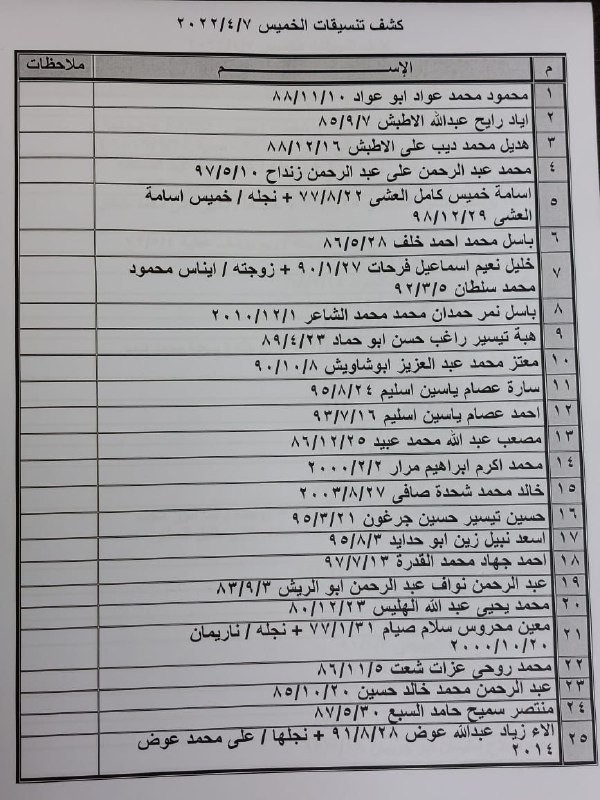 كشف تنسيقات الخميس ٢٠٢٢/٤/٧
م الإســـم ملاحظات
١ محمود محمد عواد ابو عواد ٨٨/١١/١٠
٢ اياد رايح عبدالله الاطبش ٨٥/٩/٧
٣ هديل محمد ديب على الاطبش ٨٨/١٢/١٦
٤ محمد عبد الرحمن على عبد الرحمن زنداح ٩٧/٥/١٠
٥ اسامة خميس كامل العشى ٧٧/٨/٢٢ + نجله / خميس اسامة
العشى ٩٨/١٢/٢٩
٦ باسل محمد احمد خلف ٨٦/٥/٢٨
٧ خليل نعيم اسماعيل فرحات ٩٠/١/٢٧ + زوجته / ايناس محمود
محمد سلطان ٩٢/٣/٥
٨ باسل نمر حمدان محمد محمد الشاعر ٢٠١٠/١٢/١
٩ هبة تيسير راغب حسن ابو حماد ٨٩/٤/٢٣
١٠ معتز محمد عبد العزيز ابوشاويش ٩٠/١٠/٨
١١ سارة عصام ياسين اسليم ٩٥/٨/٢٤
١٢ احمد عصام ياسين اسليم ٩٣/٧/١٦
١٣ مصعب عبد الله محمد عبيد ٨٦/١٢/٢٥
١٤ محمد اكرم ابراهيم مرار ٢٠٠٠/٢/٢
١٥ خالد محمد شحدة صافى ٢٠٠٣/٨/٢٧
١٦ حسين تيسير حسين جرغون ٩٥/٣/٢١
١٧ اسعد نبيل زين ابو حدايد ٩٥/٨/٣
١٨ احمد جهاد محمد القدرة ٩٧/٧/١٣
١٩ عبد الرحمن نواف عبد الرحمن ابو الريش ٨٣/٩/٣
٢٠ محمد يحيى عبد الله الهليس ٨٠/١٢/٢٣
٢١ معين محروس سلام صيام ٧٧/١/٣١ + نجله / ناريمان
٢٠٠٠/١٠/٢٠
٢٢ محمد روحى عزات شعت ٨٦/١١/٥
٢٣ عبد الرحمن محمد خالد حسين ٨٥/١٠/٢٠
٢٤ منتصر سميح حامد السبع ٨٧/٥/٣٠
٢٥ الاء زياد عبدالله عوض ٩١/٨/٢٨ + نجلها / على محمد عوض
٢٠١٤